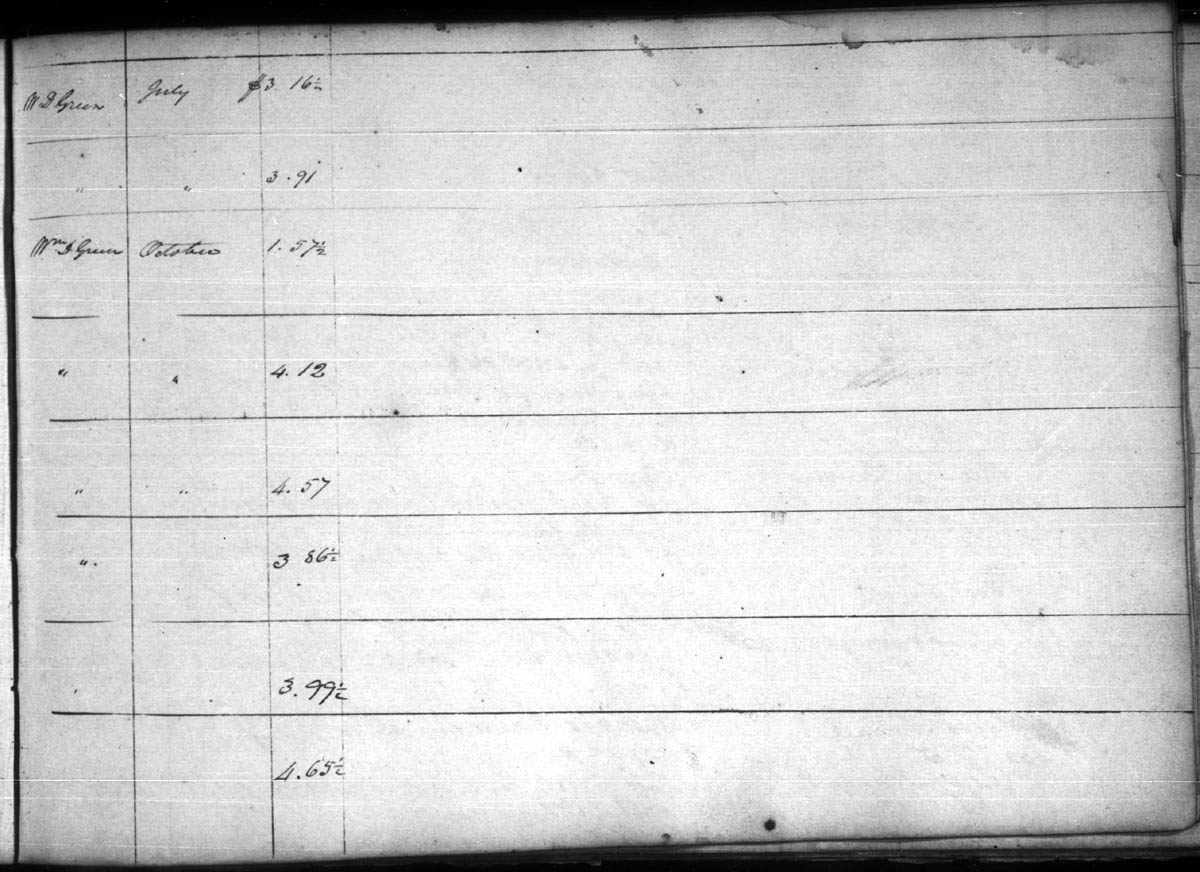 W D Green July $3 16½
" " 3.91
Wm D Green October 1.57½
" " 4.12
" " 4.57
" 3 86½
3.99½
4.65½